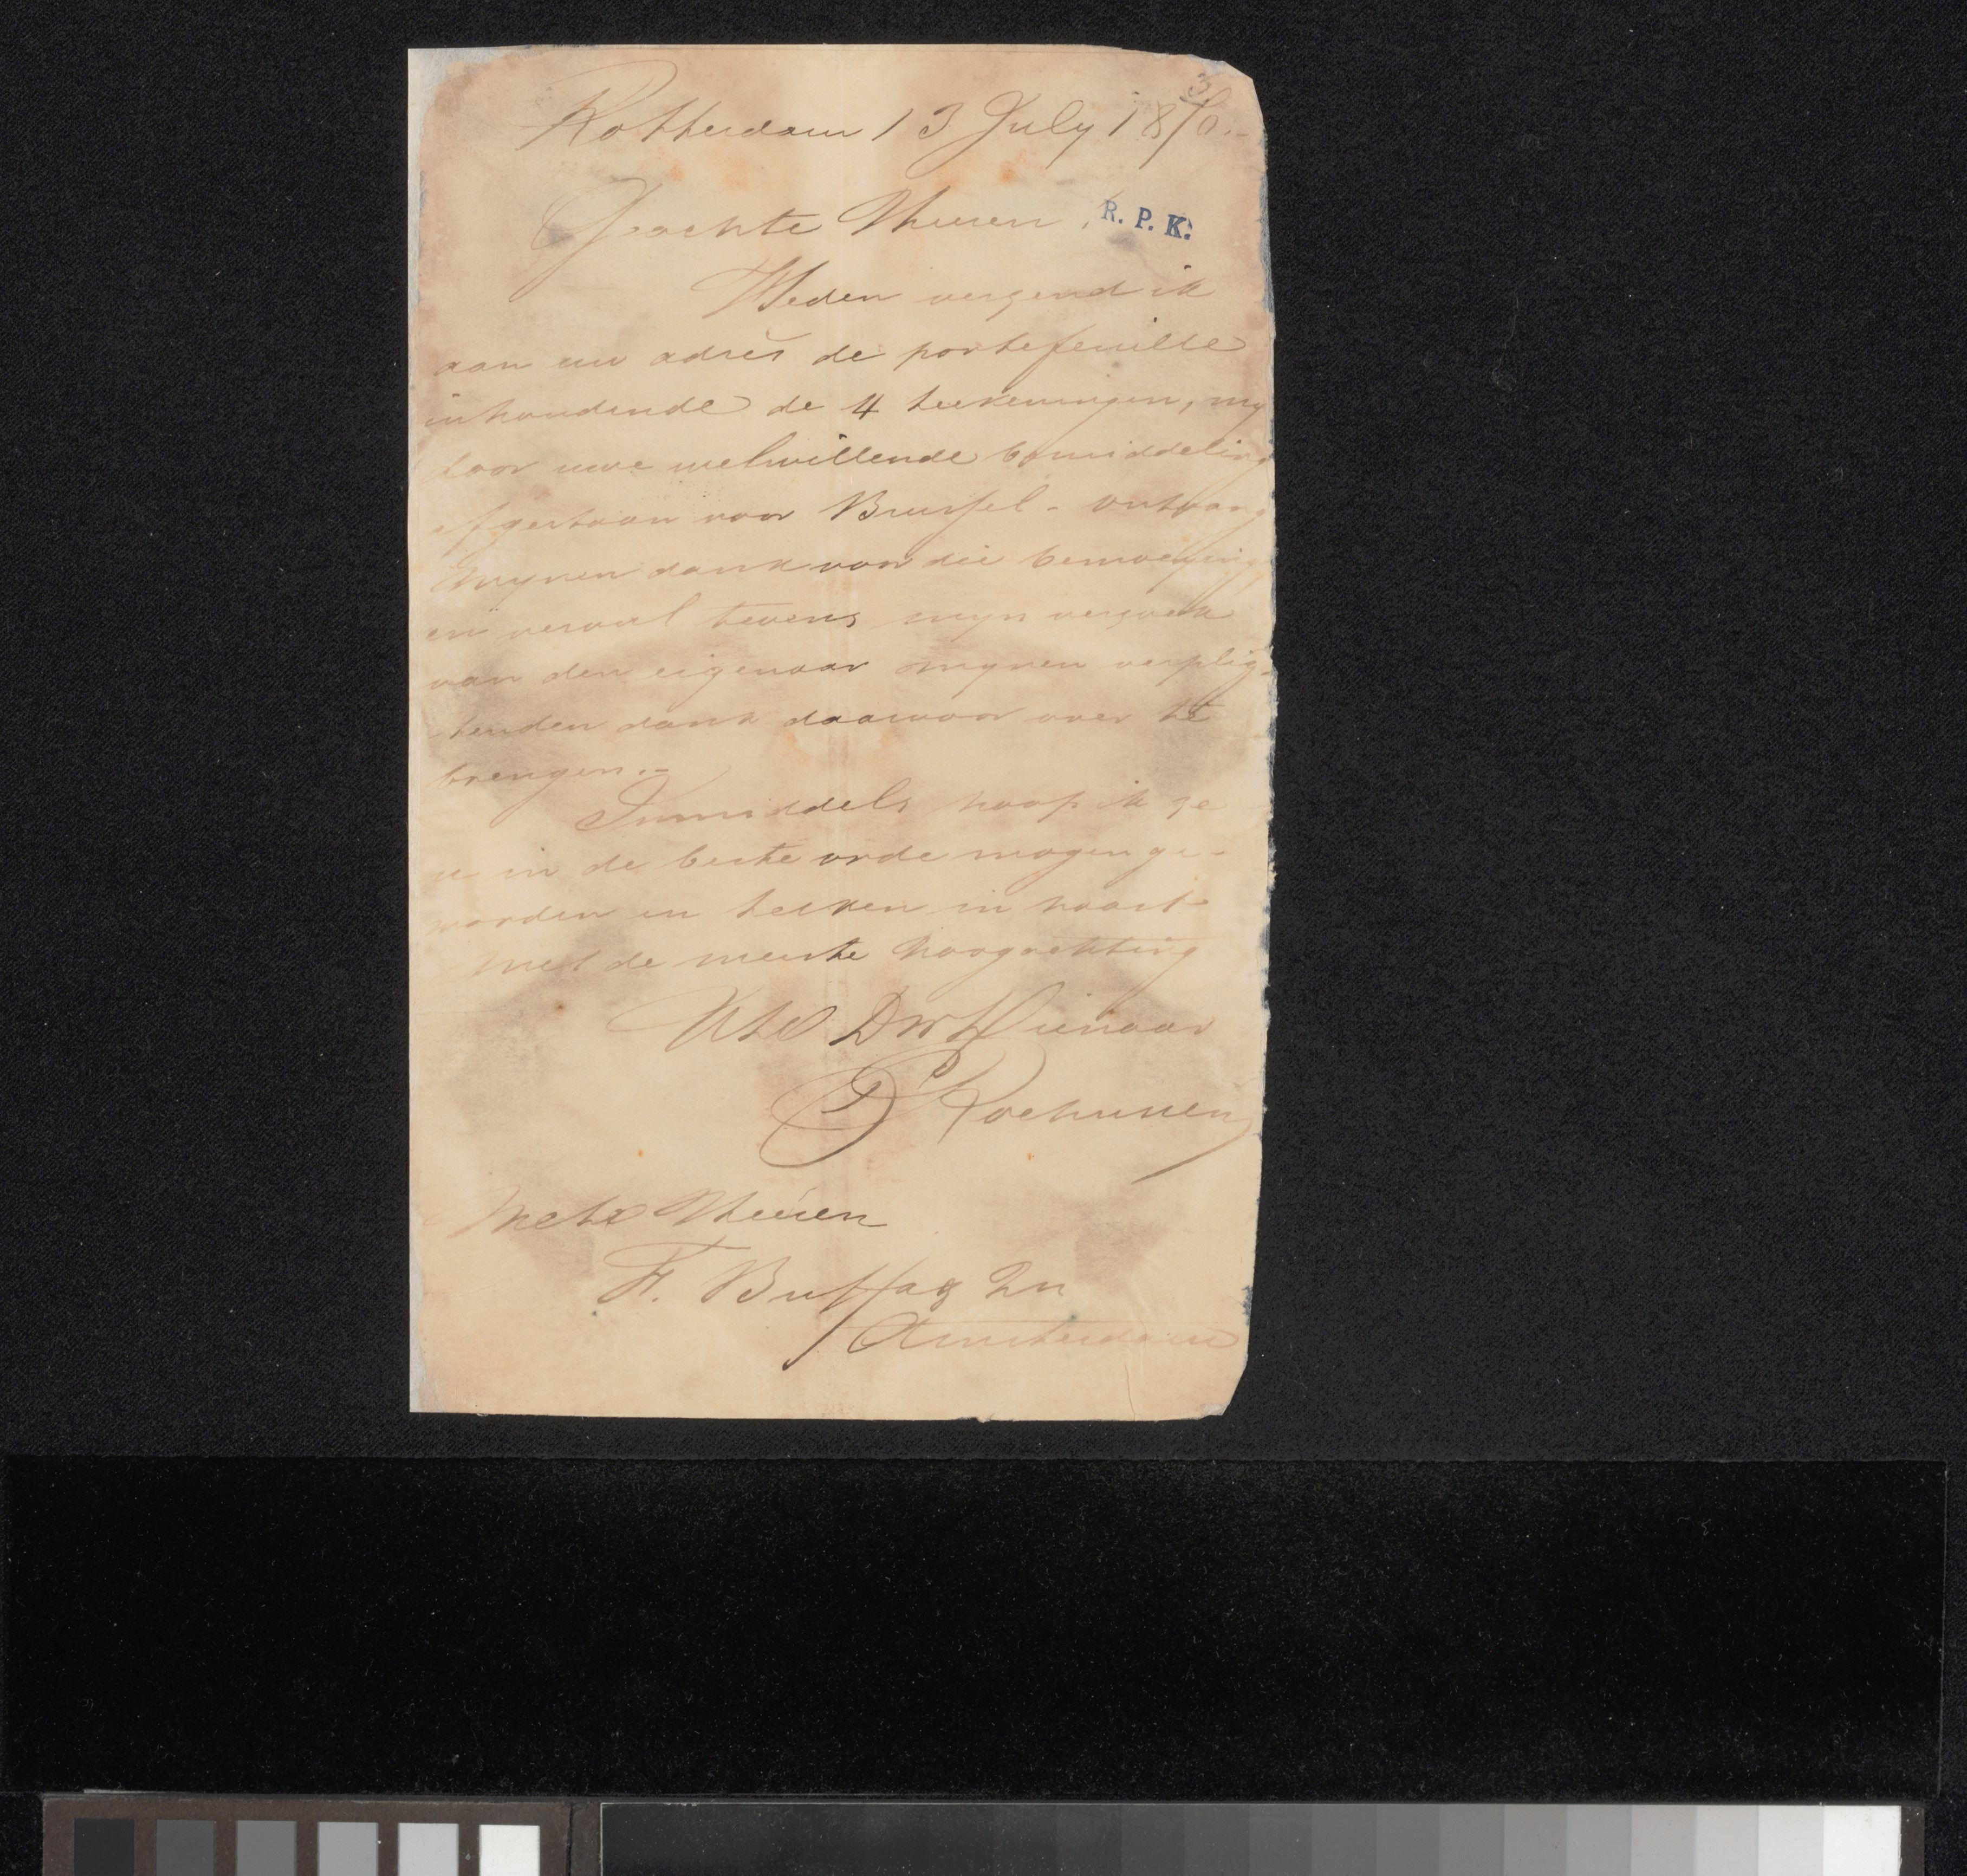 3
Rotterdam 13 July 1870.-
Geachte Heeren, R. P. K.
Heden verzend ik
aan uw adrès de portefeuille
inhoudende de 4 teekeningen, my
door uwe welwillende bemiddeling
afgestaan voor Brussel - ontvang
mynen dank voor die bemoeying
en vervul tevens myn verzoek
van den eigenaar mynen verplig-
tenden dank daarvoor over te
brengen.-
Inmiddels hoop ik ze
u in de beste orde mogen ge-
worden en teeken in haast
met de meeste hoogachting
UEd Dw Dienaar
Rochussen
Heeren
F. Buffa & Zn
Amsterdam